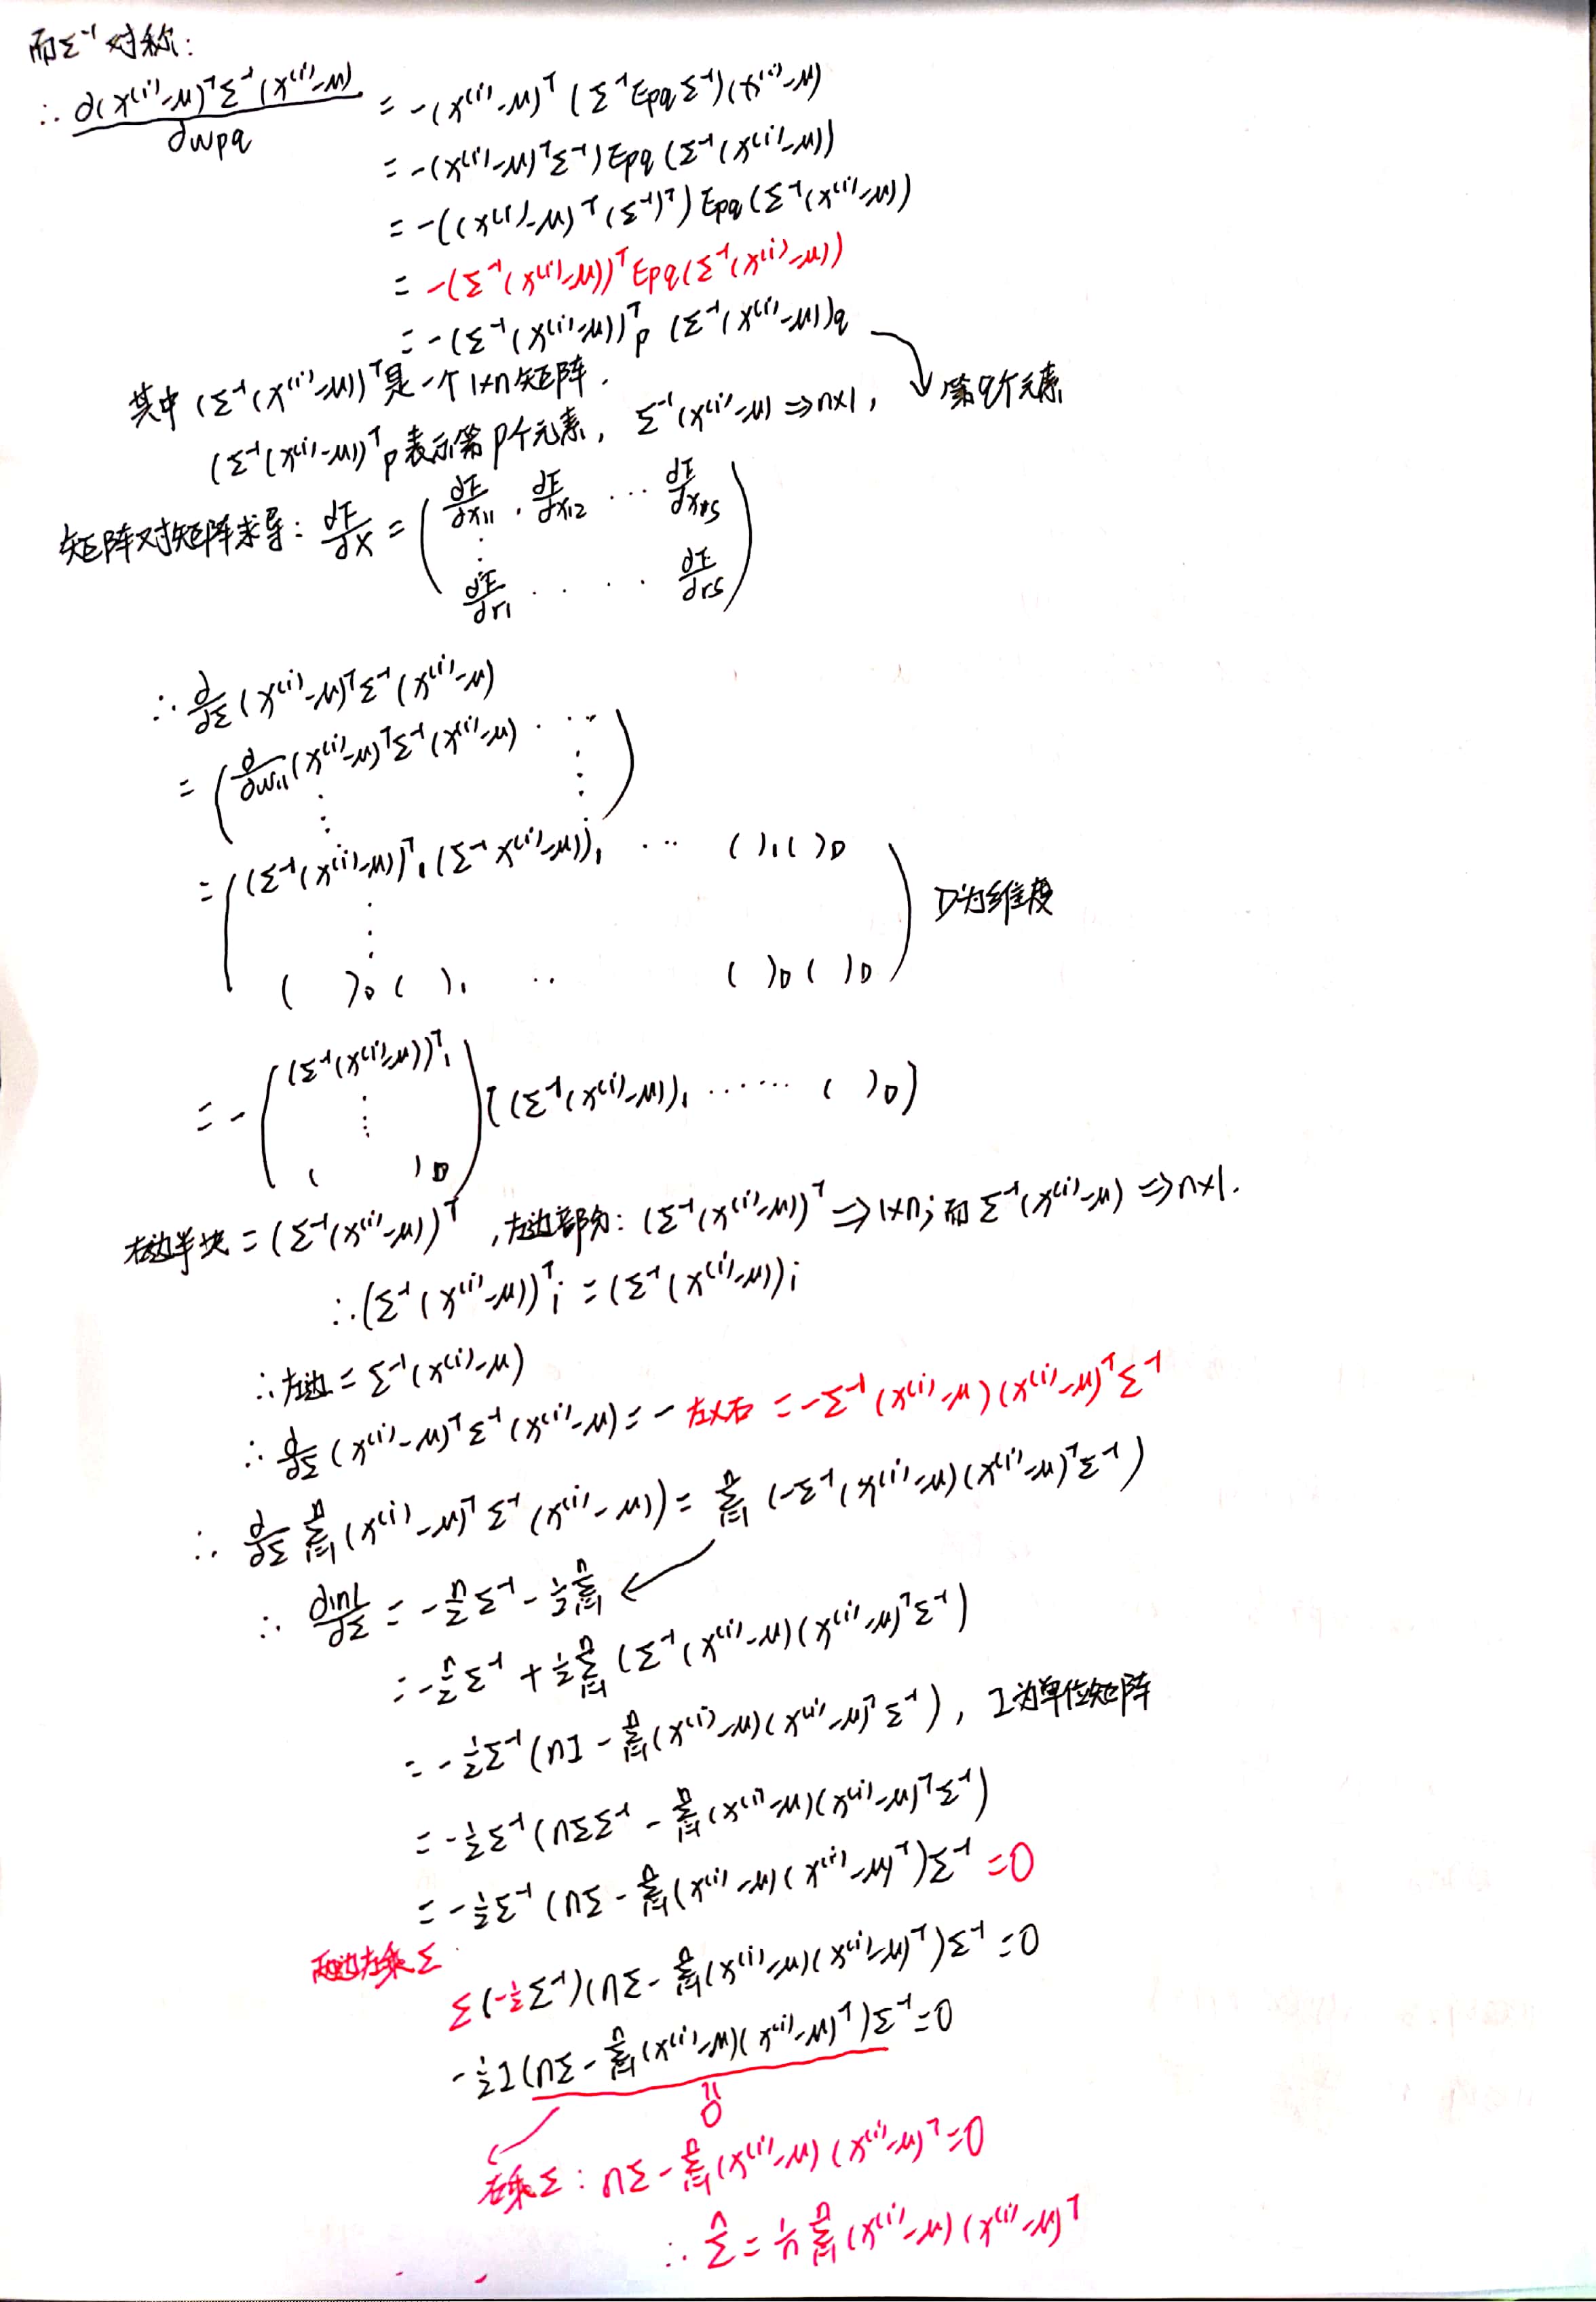 而Σ⁻¹对称:
∴ ∂(x⁽ⁱ⁾-μ)ᵀΣ⁻¹(x⁽ⁱ⁾-μ)/∂wpq = -(x⁽ⁱ⁾-μ)ᵀ(Σ⁻¹EpqΣ⁻¹)(x⁽ⁱ⁾-μ)
= -(x⁽ⁱ⁾-μ)ᵀΣ⁻¹)Epq(Σ⁻¹(x⁽ⁱ⁾-μ))
= -((x⁽ⁱ⁾-μ)ᵀ(Σ⁻¹)ᵀ)Epq(Σ⁻¹(x⁽ⁱ⁾-μ))
= -(Σ⁻¹(x⁽ⁱ⁾-μ))ᵀEpq(Σ⁻¹(x⁽ⁱ⁾-μ))
= -(Σ⁻¹(x⁽ⁱ⁾-μ))ᵀp (Σ⁻¹(x⁽ⁱ⁾-μ))q
其中(Σ⁻¹(x⁽ⁱ⁾-μ))ᵀ是一个1×n矩阵.
(Σ⁻¹(x⁽ⁱ⁾-μ))ᵀp表示第p个元素, Σ⁻¹(x⁽ⁱ⁾-μ)⇒n×1, 第q个元素
矩阵对矩阵求导: ∂F/∂X = ( ∂F/∂x11 , ∂F/∂x12 ... ∂F/∂xrs
∂F/∂r1 .... ∂F/∂rs )
∴ ∂/∂Σ (x⁽ⁱ⁾-μ)ᵀΣ⁻¹(x⁽ⁱ⁾-μ)
= ( ∂/∂w11 (x⁽ⁱ⁾-μ)ᵀΣ⁻¹(x⁽ⁱ⁾-μ) .... )
= ( (Σ⁻¹(x⁽ⁱ⁾-μ))ᵀ₁(Σ⁻¹x⁽ⁱ⁾-μ))₁ ... ( )₁( )D
D为维度
( )D( )₁ .. ( )D( )D )
= - ( (Σ⁻¹(x⁽ⁱ⁾-μ))ᵀ₁ ⋮ ( )D ) [(Σ⁻¹(x⁽ⁱ⁾-μ))₁ ...... ( )D]
右边半块=(Σ⁻¹(x⁽ⁱ⁾-μ))ᵀ ,左边部分: (Σ⁻¹(x⁽ⁱ⁾-μ))ᵀ⇒1×n; 而Σ⁻¹(x⁽ⁱ⁾-μ)⇒n×1.
∴(Σ⁻¹(x⁽ⁱ⁾-μ))ᵀi = (Σ⁻¹(x⁽ⁱ⁾-μ))i
∴左边=Σ⁻¹(x⁽ⁱ⁾-μ)
∴ ∂/∂Σ (x⁽ⁱ⁾-μ)ᵀΣ⁻¹(x⁽ⁱ⁾-μ) = - 左×右 = -Σ⁻¹(x⁽ⁱ⁾-μ)(x⁽ⁱ⁾-μ)ᵀΣ⁻¹
∴ ∂/∂Σ Σⁿᵢ₌₁(x⁽ⁱ⁾-μ)ᵀΣ⁻¹(x⁽ⁱ⁾-μ)) = Σⁿᵢ₌₁(-Σ⁻¹(x⁽ⁱ⁾-μ)(x⁽ⁱ⁾-μ)ᵀΣ⁻¹)
∴ ∂lnL/∂Σ = -n/2 Σ⁻¹ - 1/2 Σⁿᵢ₌₁
= -n/2 Σ⁻¹ + 1/2 Σⁿᵢ₌₁(Σ⁻¹(x⁽ⁱ⁾-μ)(x⁽ⁱ⁾-μ)ᵀΣ⁻¹)
= -1/2 Σ⁻¹(nI - Σⁿᵢ₌₁(x⁽ⁱ⁾-μ)(x⁽ⁱ⁾-μ)ᵀΣ⁻¹), I为单位矩阵
= -1/2 Σ⁻¹(nΣΣ⁻¹ - Σⁿᵢ₌₁(x⁽ⁱ⁾-μ)(x⁽ⁱ⁾-μ)ᵀΣ⁻¹)
= -1/2 Σ⁻¹(nΣ - Σⁿᵢ₌₁(x⁽ⁱ⁾-μ)(x⁽ⁱ⁾-μ)ᵀ)Σ⁻¹ =0
两边左乘Σ
Σ(-1/2 Σ⁻¹)(nΣ - Σⁿᵢ₌₁(x⁽ⁱ⁾-μ)(x⁽ⁱ⁾-μ)ᵀ)Σ⁻¹=0
-1/2 I(nΣ - Σⁿᵢ₌₁(x⁽ⁱ⁾-μ)(x⁽ⁱ⁾-μ)ᵀ)Σ⁻¹=0
=0
右乘Σ: nΣ - Σⁿᵢ₌₁(x⁽ⁱ⁾-μ)(x⁽ⁱ⁾-μ)ᵀ=0
∴ Σ̂ = 1/n Σⁿᵢ₌₁(x⁽ⁱ⁾-μ)(x⁽ⁱ⁾-μ)ᵀ